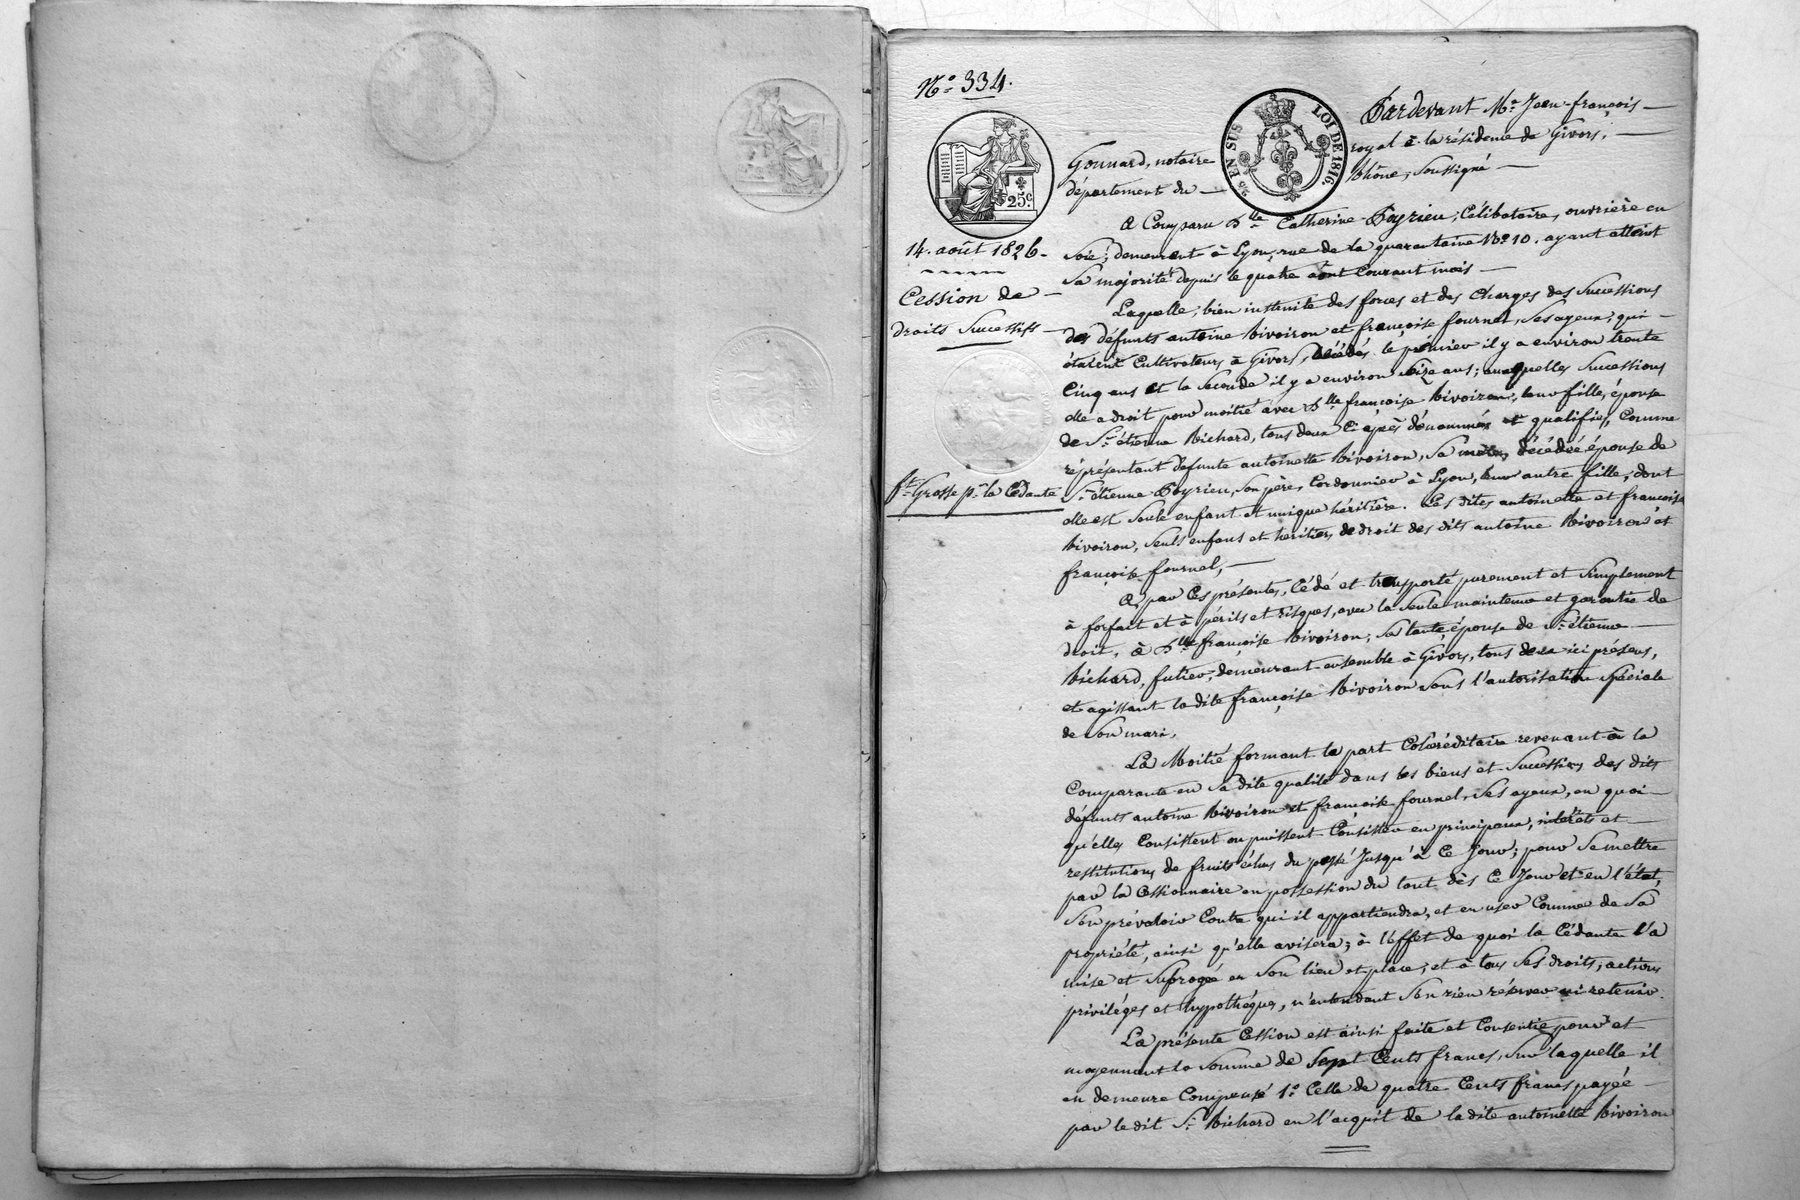 N.° 334.
25 EN SUS
LOI DE 1816.
25c.
Pardevant Me. Jean-françois
Gonnard, notaire royal à la résidence de Givors,
département du Rhône, soussigné
14. août 1826.
Cession de
droits Successifs
fte. Grosse pr. la Cédante
A Comparu Dlle. Catherine Poyrieu, Célibataire, ouvrière en
Soie, demeurant à Lyon, rue de la quarantaine No. 10. ayant atteint
Sa majorité depuis le quatre août Courant mois
Laquelle, bien instruite des forces et des Charges des Successions
des défunts antoine Rivoiron et françoise fournel, Ses ayeux, qui
étaient Cultivateurs à Givors, décédés le prémier il y a environ trente
Cinq ans et la Seconde il y a environ Seize ans; auxquelles Successions
elle a droit pour moitié avec Dlle. françoise Rivoiron, leur fille, épouse
de Sr. étienne Richard, tous deux Ci après dénommés et qualifiés, Comme
réprésentant défunte antoinette Rivoiron, Sa mère, décédée épouse de
Sr. étienne Poyrieu, Son père, Cordonnier à Lyon, leur autre fille, dont
elle est Seule enfant et unique héritière. Les dites antoinette et françoise
Rivoiron, Seuls enfans et heritiers de droit des dits antoine Rivoiron et
françoise fournel,
A, par Ces présentes, Cédé et transporté purement et Simplement
à forfait et à périls et risques, avec la Seule maintenue et garantie de
droit, à Dlle. françoise Rivoiron, Sa tante, épouse de Sr. étienne
Richard, futier, demeurant ensemble à Givors, tous deux ici présens,
et agissant la dite françoise Rivoiron Sous l'autorisation Spéciale
de Son mari,
La Moitié formant la part Cohéréditaire revenant à la
Comparante en Sa dite qualité dans les biens et Successions des dits
défunts antoine Rivoiron et françoise fournel, Ses ayeux, en quoi
qu'elles Consistent ou puissent Consister en principaux, intérêts et
restitutions de fruits échus du passé Jusqu'à Ce Jour; pour Se mettre
par la Cessionnaire en possession du tout dès Ce Jour et en l'état,
S'en prévaloir Contre qui il appartiendra, et en user Comme de Sa
propriété, ainsi qu'elle avisera; à l'effet de quoi la Cédante l'a
mise et Subrogée en Son lieu et place, et à tous Ses droits, actions
priviléges et hypothéques, n'entendant S'en rien réserver ni retenir.
La présente Cession est ainsi faite et Consentie pour et
moyennant la Somme de Sept Cents francs, Sur laquelle il
en demeure Compensé 1.° Celle de quatre Cents francs payée
par le dit Sr. Richard en l'acquit de la dite antoinette Rivoiron